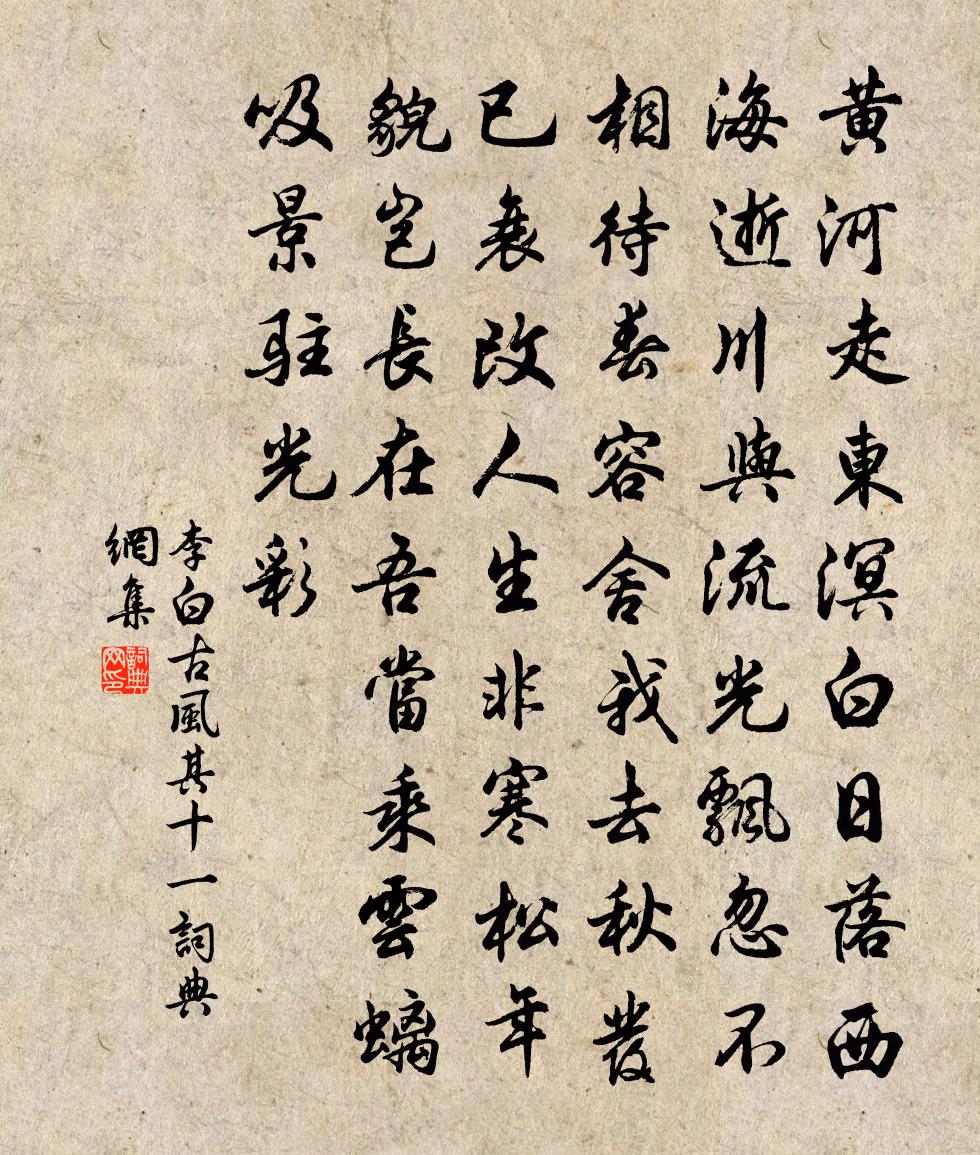 黄河走東溟白日落西
海逝川與流光飄忽不
相待春容舍我去秋發
已衰改人生非寒松年
貌豈長在吾當乘雲螭
吸景駐光彩
李白古風其十一詞典
網集
詞典網印